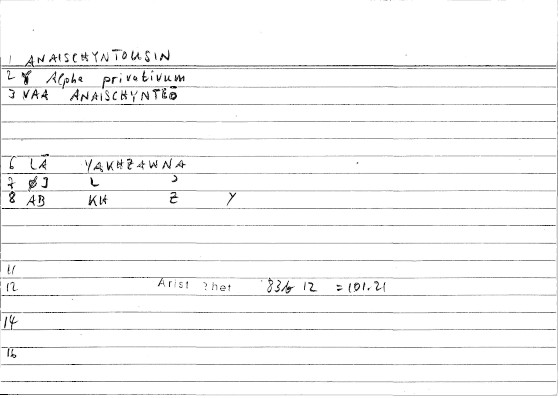 1 ANAISCHYNTOUSIN
2 Alpha privativum
3 VAA ANAISCHYNTEŌ
6 LĀ YAKHZAWNA
7 L
8 AB KH Z Y
11
12 Arist Rhet 83b 12 = 101.21
14
16